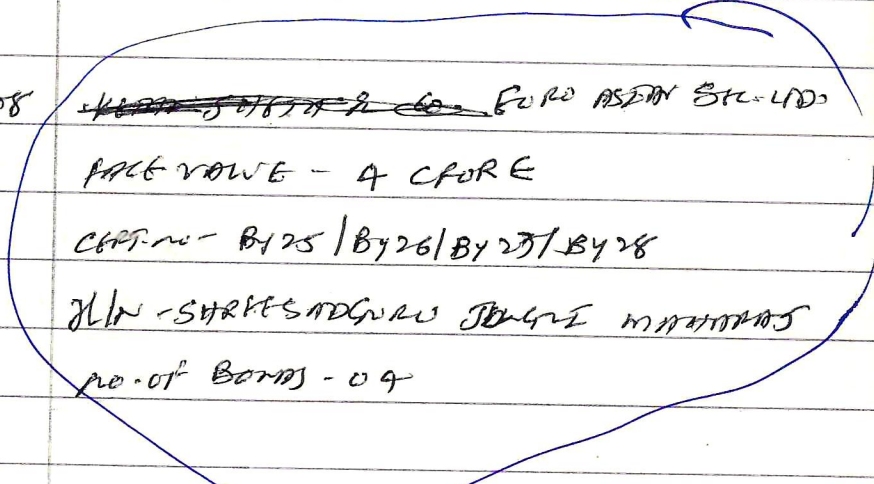 08 EURO ASIAN SEC. LTD.
FACE VALUE - 4 CRORE
CERT. no - BY25/BY26/BY27/BY28
H/N - SHREE SADGURU JANGLI MAHARAJ
no. of BONDS - 04